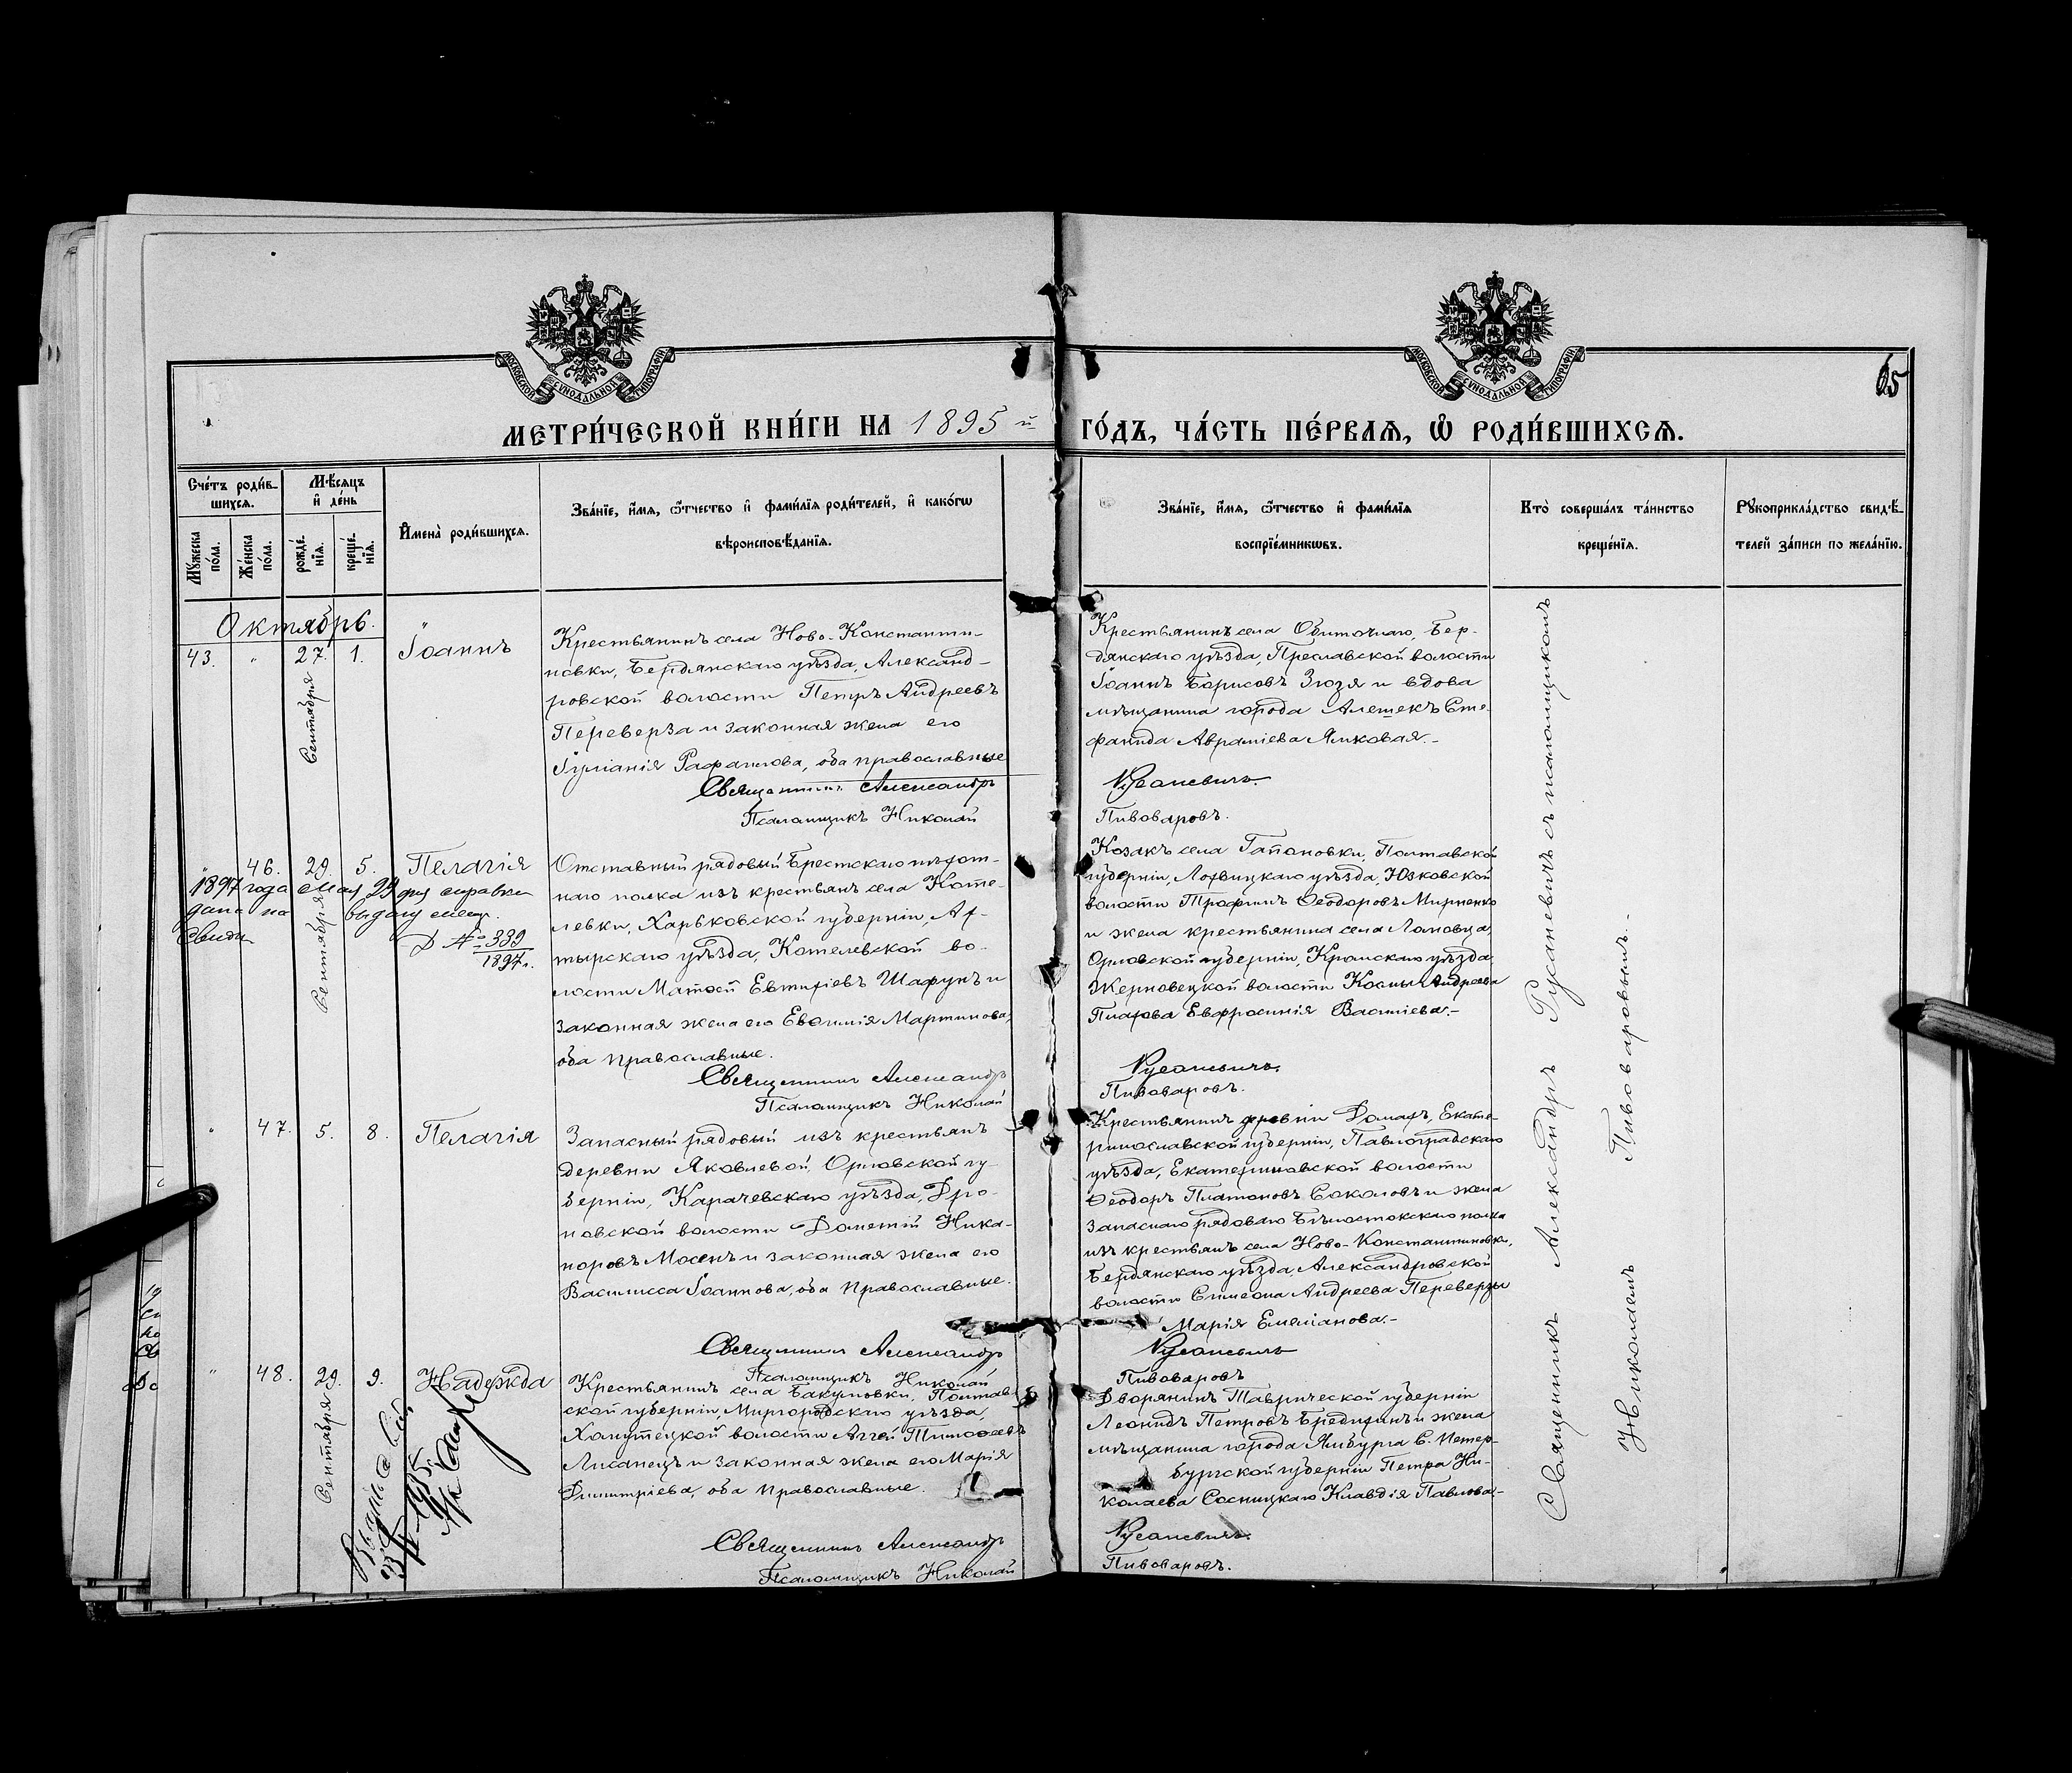 65
МЕТРИ́ЧЕСКОЙ КНИ́ГИ НА 1895й ГО́ДЪ, ЧА́СТЬ ПЕ́РВАѦ, Ѡ҆ РОДИ́ВШИХСѦ.
МОСКОВСКОЙ СУНОДАЛЬНОЙ ТИПОГРАФІИ
МОСКОВСКОЙ СУНОДАЛЬНОЙ ТИПОГРАФІИ
Сче́тъ роди́в-
шихсѧ.
Мꙋ́жеска по́ла.
Же́нска по́ла.
Мѣ́сѧцъ
и҆ де́нь
рожде́нїѧ.
креще́нїѧ.
И҆мена̀ роди́вшихсѧ.
Зва́нїе, и҆́мѧ, ѻ҆́тчество и҆ фами́лїѧ роди́телей, и҆ како́гѡ
вѣроисповѣ́данїѧ.
Зва́нїе, и҆́мѧ, ѻ҆́тчество и҆ фами́лїѧ
воспрїе́мникѡвъ.
Кто̀ соверша́лъ та́инство
креще́нїѧ.
Рꙋкоприкла́дство свидѣ́-
телей за́писи по жела́нїю.
Октябрь.
43. " 27. 1. Іоаннъ
Сентября
Крестьянинъ села Ново-Константи-
новки, Бердянскаго уѣзда, Александ-
ровской волости Петръ Андреевъ
Переверза и законная жена его
Іуліанія Рафаилова, оба православные
Священникъ Александръ
Псаломщикъ Николай
Крестьянинъ села Обиточнаго, Бер-
дянскаго уѣзда, Преславской волости
Іоаннъ Борисовъ Зюзя и вдова
мѣщанина города Алешекъ Сте-
фанида Авраміева Ямковая.-
Русаневичъ.
Пивоваровъ.
" 46. 29. 5. Пелагія
Сентября
1897 года Мая 24 дня справка
дана на выдачу
Д №339
1897г.
Отставный рядовый Брестскаго пѣхот-
наго полка изъ крестьянъ села Коте-
левки, Харьковской губерніи, Ах-
тырскаго уѣзда, Котелевской во-
лости Матѳей Евтихіевъ Шафунъ и
законная жена его Евѳимія Мартинова,
оба православные.
Священникъ Александръ
Псаломщикъ Николай
Козакъ села Гапоновки, Полтавской
губерніи, Лохвицкаго уѣзда, Юзковской
волости Трофимъ Ѳеодоровъ Мирненко
и жена крестьянина села Ломовца,
Орловской губерніи, Кромскаго уѣзда,
Жерновецкой волости Космы Андреева
Пиахова Евфросинія Василіева.-
Русаневичъ.
Пивоваровъ.
" 47. 5. 8. Пелагія
Запасный рядовый изъ крестьянъ
деревни Яковлевой, Орловской гу-
берніи, Карачевскаго уѣзда, Дро-
новской волости Дометій Ника-
норовъ Мосенъ и законная жена его
Василисса Іоаннова, оба православные.
Священникъ Александръ
Псаломщикъ Николай
Крестьянинъ деревни Домахъ, Екате-
ринославской губерніи, Павлоградскаго
уѣзда, Екатериновской волости
Ѳеодоръ Платоновъ Соколовъ и жена
запаснаго рядоваго Бѣлостокскаго полка
изъ крестьянъ села Ново-Константиновки,
Бердянскаго уѣзда, Александровской
волости Симеона Андреева Переверзы
Марія Емеліанова.-
Русаневичъ
Пивоваровъ
" 48. 29. 9. Надежда
Сентября
Крестьянинъ села Бакумовки, Полтав-
ской губерніи, Миргородскаго уѣзда,
Хомутецкой волости Аггей Тимоѳеевъ
Лисанецъ и законная жена его Марія
Димитріева, оба православные.
Священникъ Александръ
Псаломщикъ Николай
Дворянинъ Таврической губерніи
Леонидъ Петровъ Бредихинъ и жена
мѣщанина города Ямбурга С. Петер-
бургской губерніи Петра Ни-
колаева Сосницкаго Клавдія Павлова.-
Русаневичъ.
Пивоваровъ.
Священникъ Александръ Русаневичъ съ псаломщикомъ
Николаемъ Пивоваровымъ.-